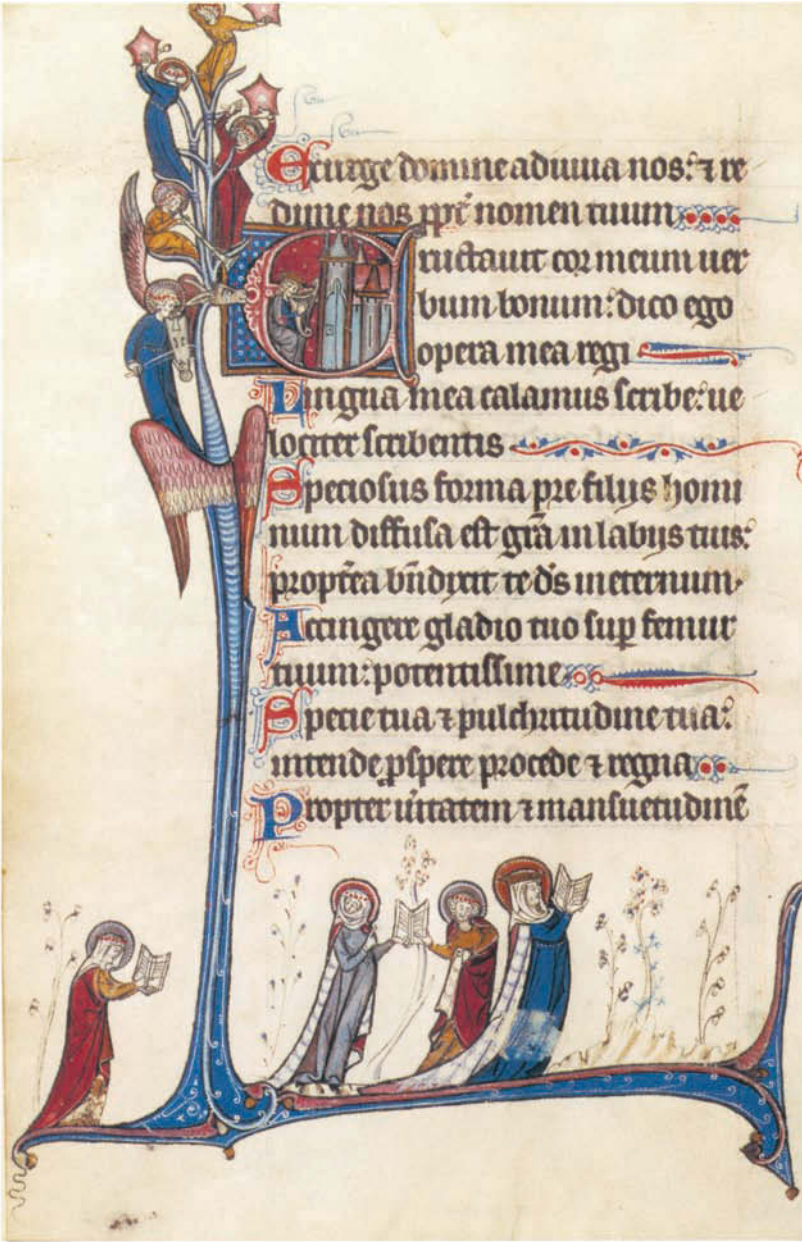 Exurge domine adiuua nos: ⁊ re
dime nos ꝓpť nomen tuum
Eructauit cor meum uer
bum bonum: dico ego
opera mea regi
Lingua mea calamus scribe: ue
lociter scribentis
Speciosus forma pre filijs homi
num diffusa est gr̄a in labijs tuis:
propťea bn̄dixit te d̄s in eternum
Accingere gladio tuo suꝑ femur
tuum: potentissime
Specie tua ⁊ pulchritudine tua:
intende ꝓspere procede ⁊ regna
Propter ūitatem ⁊ mansuetudinē